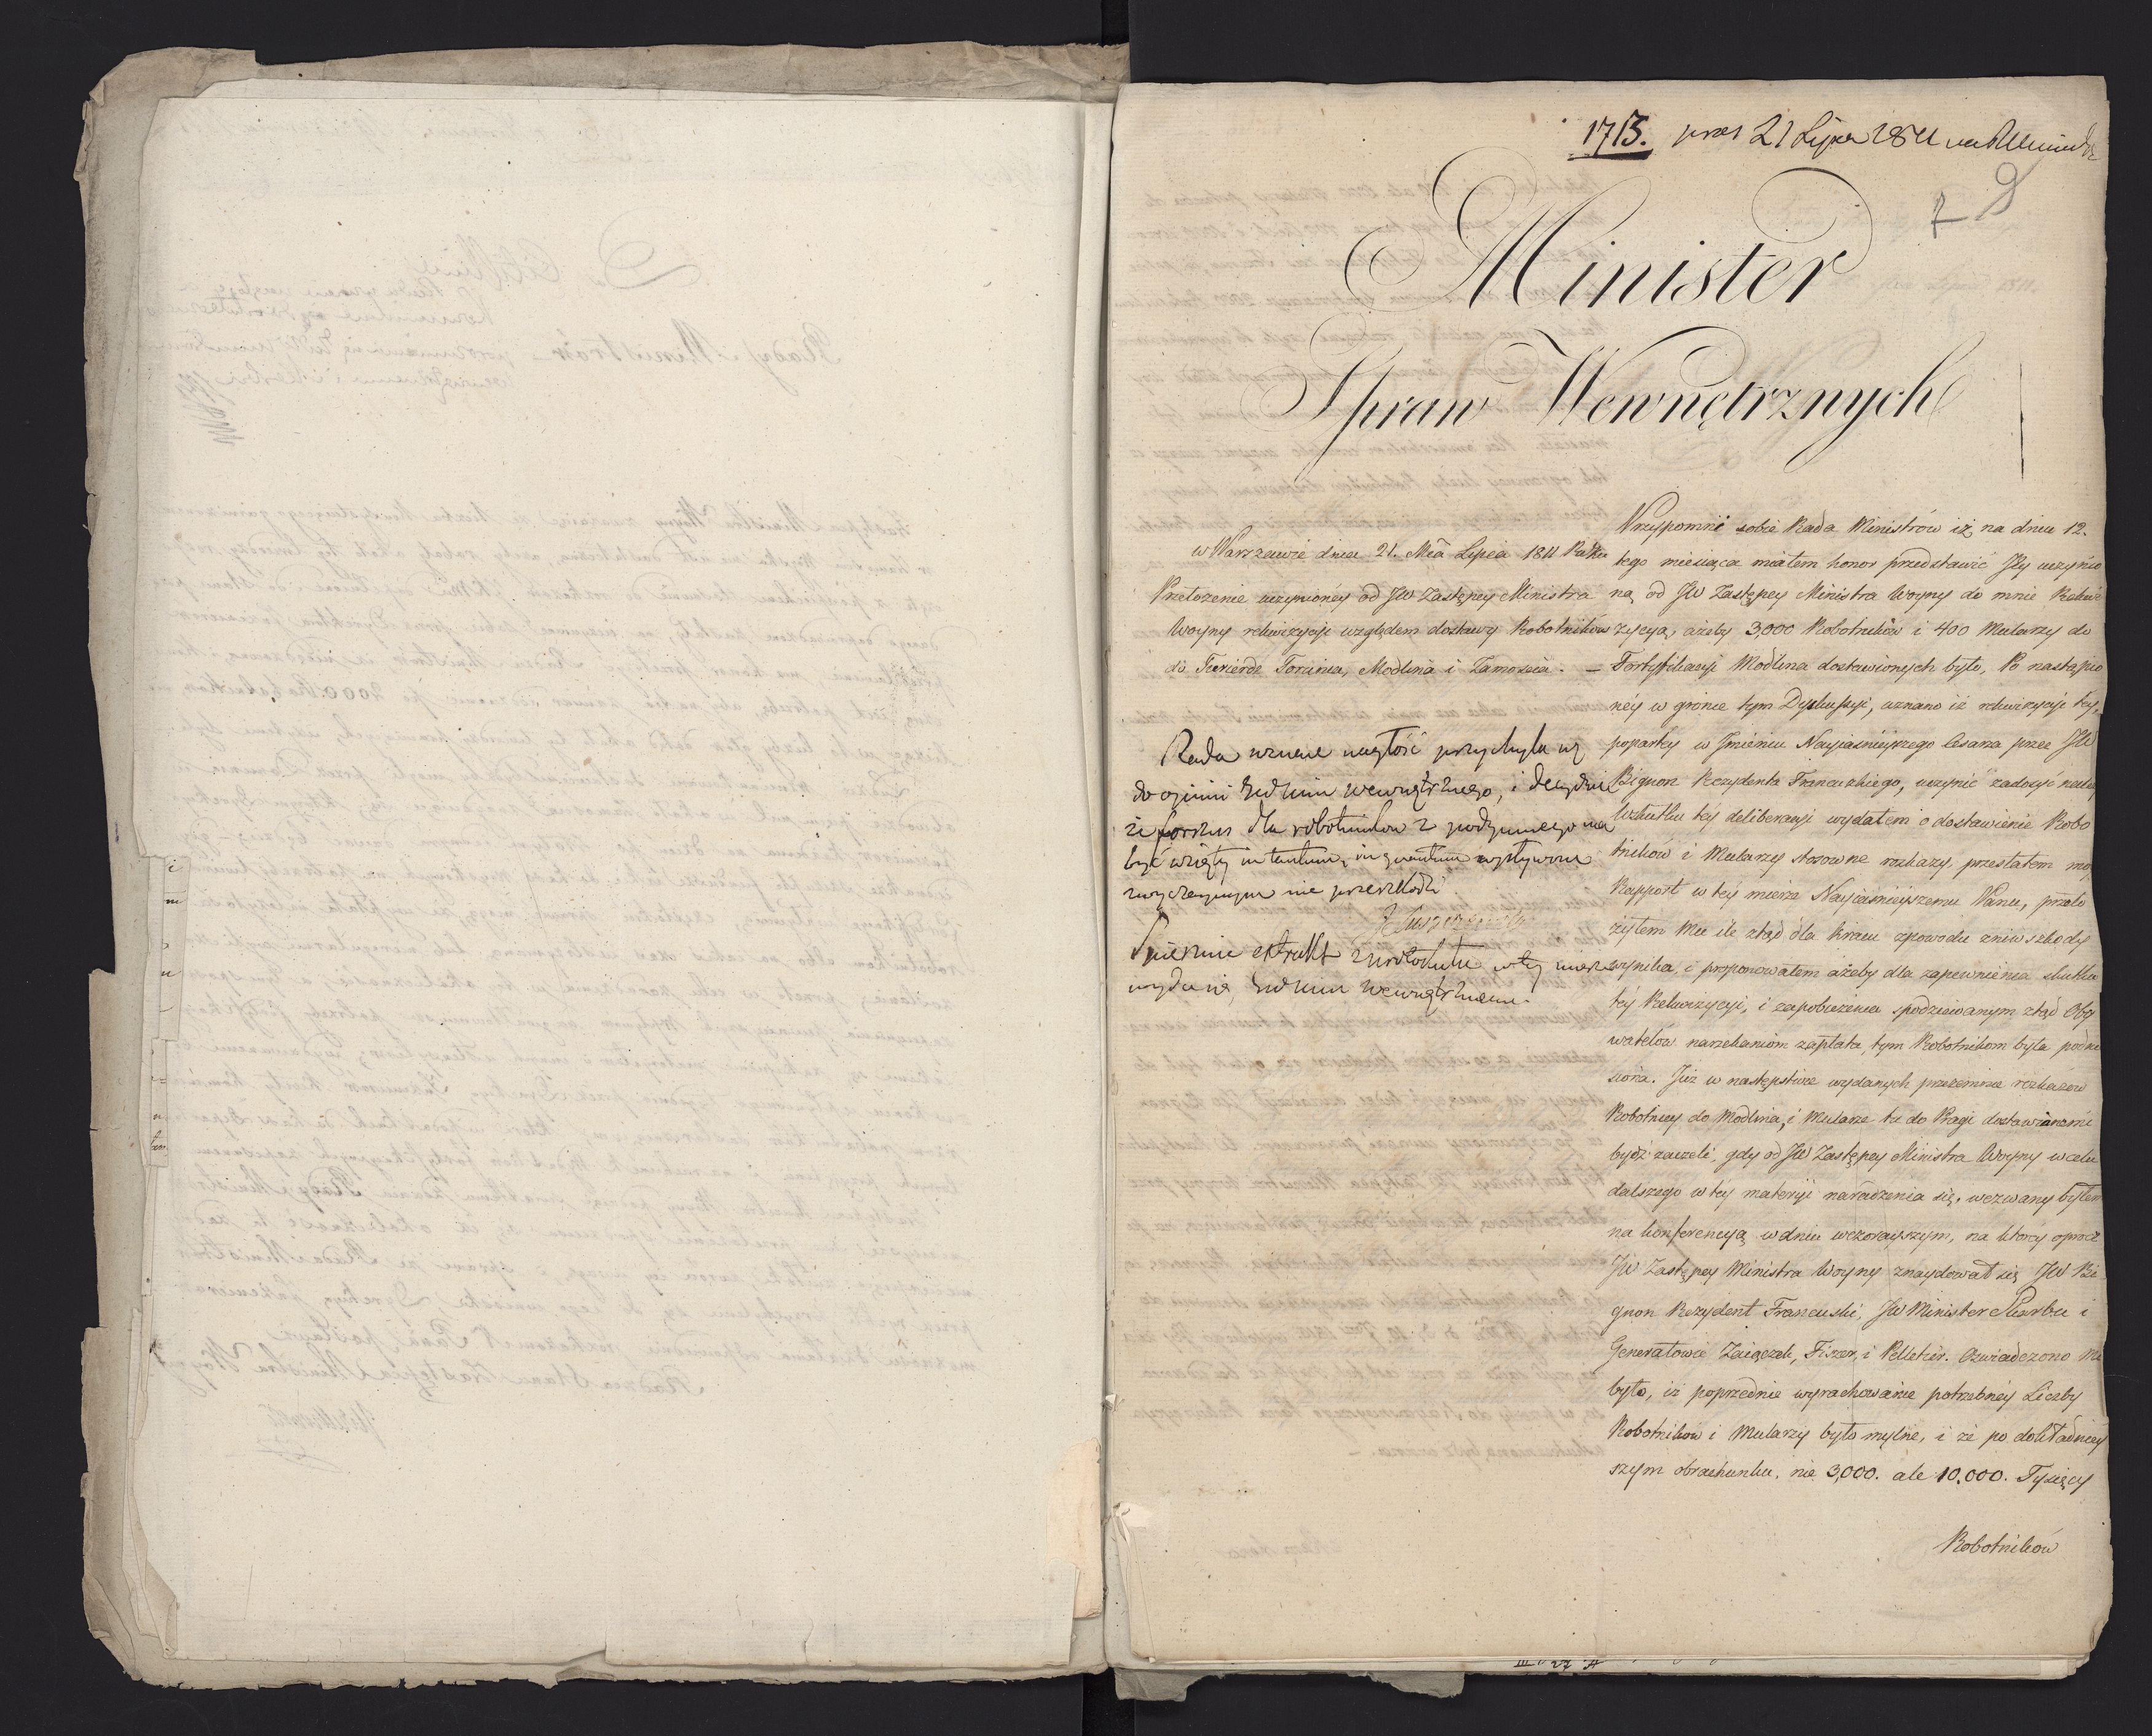 1713. prez 21 Lipca 1811
7 9
Minister
Spraw Wewnętrznych
w Warszawie dnia 21. Mca Lipca 1811 Roku
Przełożenie uczynioney od JW Zastępcy Ministra
Woyny rekwizycyi względem dostawy Robotników
do Twierdz Torunia, Modlina i Zamościa. —
Rada uznaie nagłość przychyla się
do opinii wewnętrznego, i decyduie
że forszus dla robotników z podymnego ma
być wzięty in tantum, in quantum wpływom
zwyczaynym nie przeszkodzi
JLuszczewski
extrakt z protokułu w tey mierze
wydanie wewnętrznemu.
Przypomni sobie Rada Ministrów iż na dniu 12.
tego miesiąca miałem honor przedstawić Jey uczynio
ną od JW Zastępcy Ministra Woyny do mnie Rekwi
zycyą, ażeby 3,000 Robotników i 400 Mularzy do
Fortyfikacyi Modlina dostawionych było, Po nastąpio
ney w gronie tym Dyskussyi, uznano iż rekwizycyi tey,
poparty w Jmieniu Nayiaśnieyszego Cesarza przez JW
Bignon Rezydenta Francuzkiego, uczynić zadosyć należy
Wskutku tey deliberacyi wydałem o dostawienie Robo
tników i Mularzy stosowne rozkazy, przesłałem mo
Rapport w tey mierze Nayiaśnieyszemu Panu, przeło
żyłem Mu ile ztąd dla kraiu z powodu żniw szkody
wynika, i proponowałem ażeby dla zapewnienia skutku
tey Rekwizycyi, i zapobieżenia spodziewanym ztąd Oby
watelów narzekaniom zapłata tym Robotnikom była podnie
siona. Już w następstwie wydanych przezemnie rozkazów
Robotnicy do Modlina, i Mularze tu do Pragi dostawianemi
bydź zaczeli, gdy od JW Zastępcy Ministra Woyny w celu
dalszego w tey materyi naradzenia się, wezwany byłem
na konferencyą w dniu wczorayszym, na którey oprócz
JW Zastępcy Ministra Woyny znaydował się JW Bi
gnon Rezydent Francuski, JW Minister Skarbu i
Generałowie Zaiączek, Fiszer, i Pelletier. Oświadczono mi
było, iż poprzednie wyrachowanie potrzebney Liczby
Robotników i Mularzy było mylne, i że po dokładniey
szym obrachunku, nie 3,000. ale 10,000. Tysięcy
Robotników